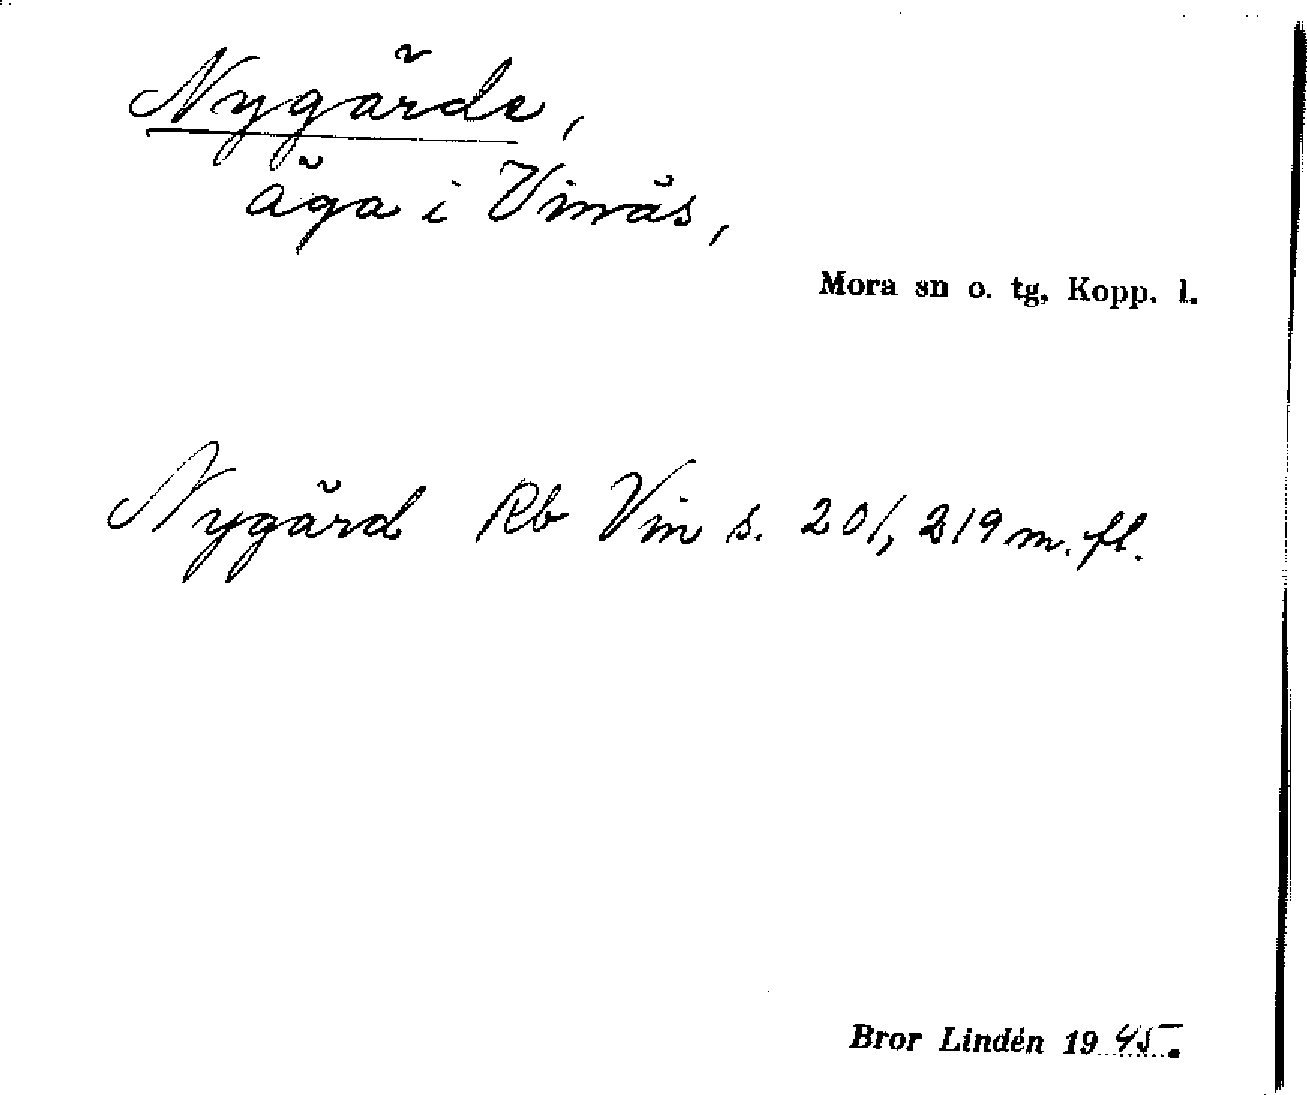 Nygärde,
äga i Vinäs,
Mora sn o. tg, Kopp. l.
Nygärd Rb Vin s. 201, 219 m. fl.
Bror Lindén 1945.